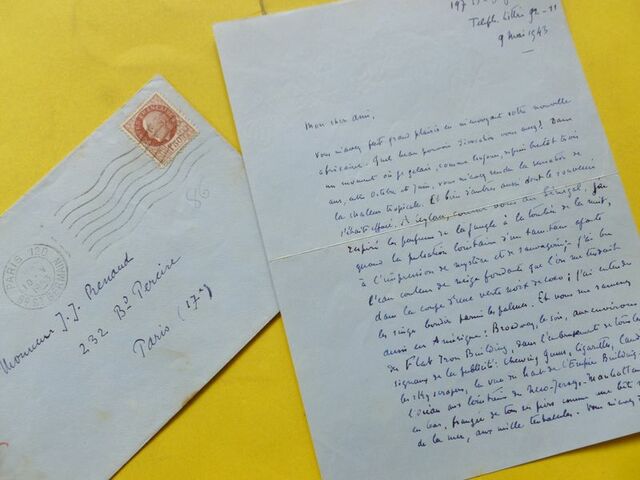 Teleph. Littré 92-31
9 Mai 1943
Mon cher ami,
Vous m'avez fait grand plaisir en m'envoyant votre nouvelle
africaine. Quel beau pouvoir d'évocation vous avez! Dans
un moment où je gelais, comme toujours, depuis bientôt trois
ans, entre Octobre et Juin, vous m'avez rendu la sensation de
la chaleur tropicale. Et bien d'autres aussi dont le souvenir
s'était effacé. À Ceylan, comme vous au Sénégal, j'ai
respiré les parfums de la jungle à la tombée de la nuit,
quand la pulsation lointaine d'un tam tam ajoute
à l'impression de mystère et de sauvagerie; j'ai bu
l'eau couleur de neige fondante que l'on me tendait
dans la coupe d'une verte noix de coco; j'ai entendu
les singes bondir parmi les palmes. Et vous me ramenez
aussi en Amérique: Broadway, le soir, aux environs
du Flat Iron Building, dans l'embrasement de tous les
signaux de la publicité: chewing gum, cigarettes,
les sky scrapers, la vue du haut de l'Empire Building,
l'Océan aux lointains de New-Jersey, Manhattan
en bas, frangée de tous ses piers comme une bête
de la mer, aux mille tentacules. Vous m'avez
PARIS
Monsieur J.-J. Renaud
232 Bd Pereire
Paris (17e)
86